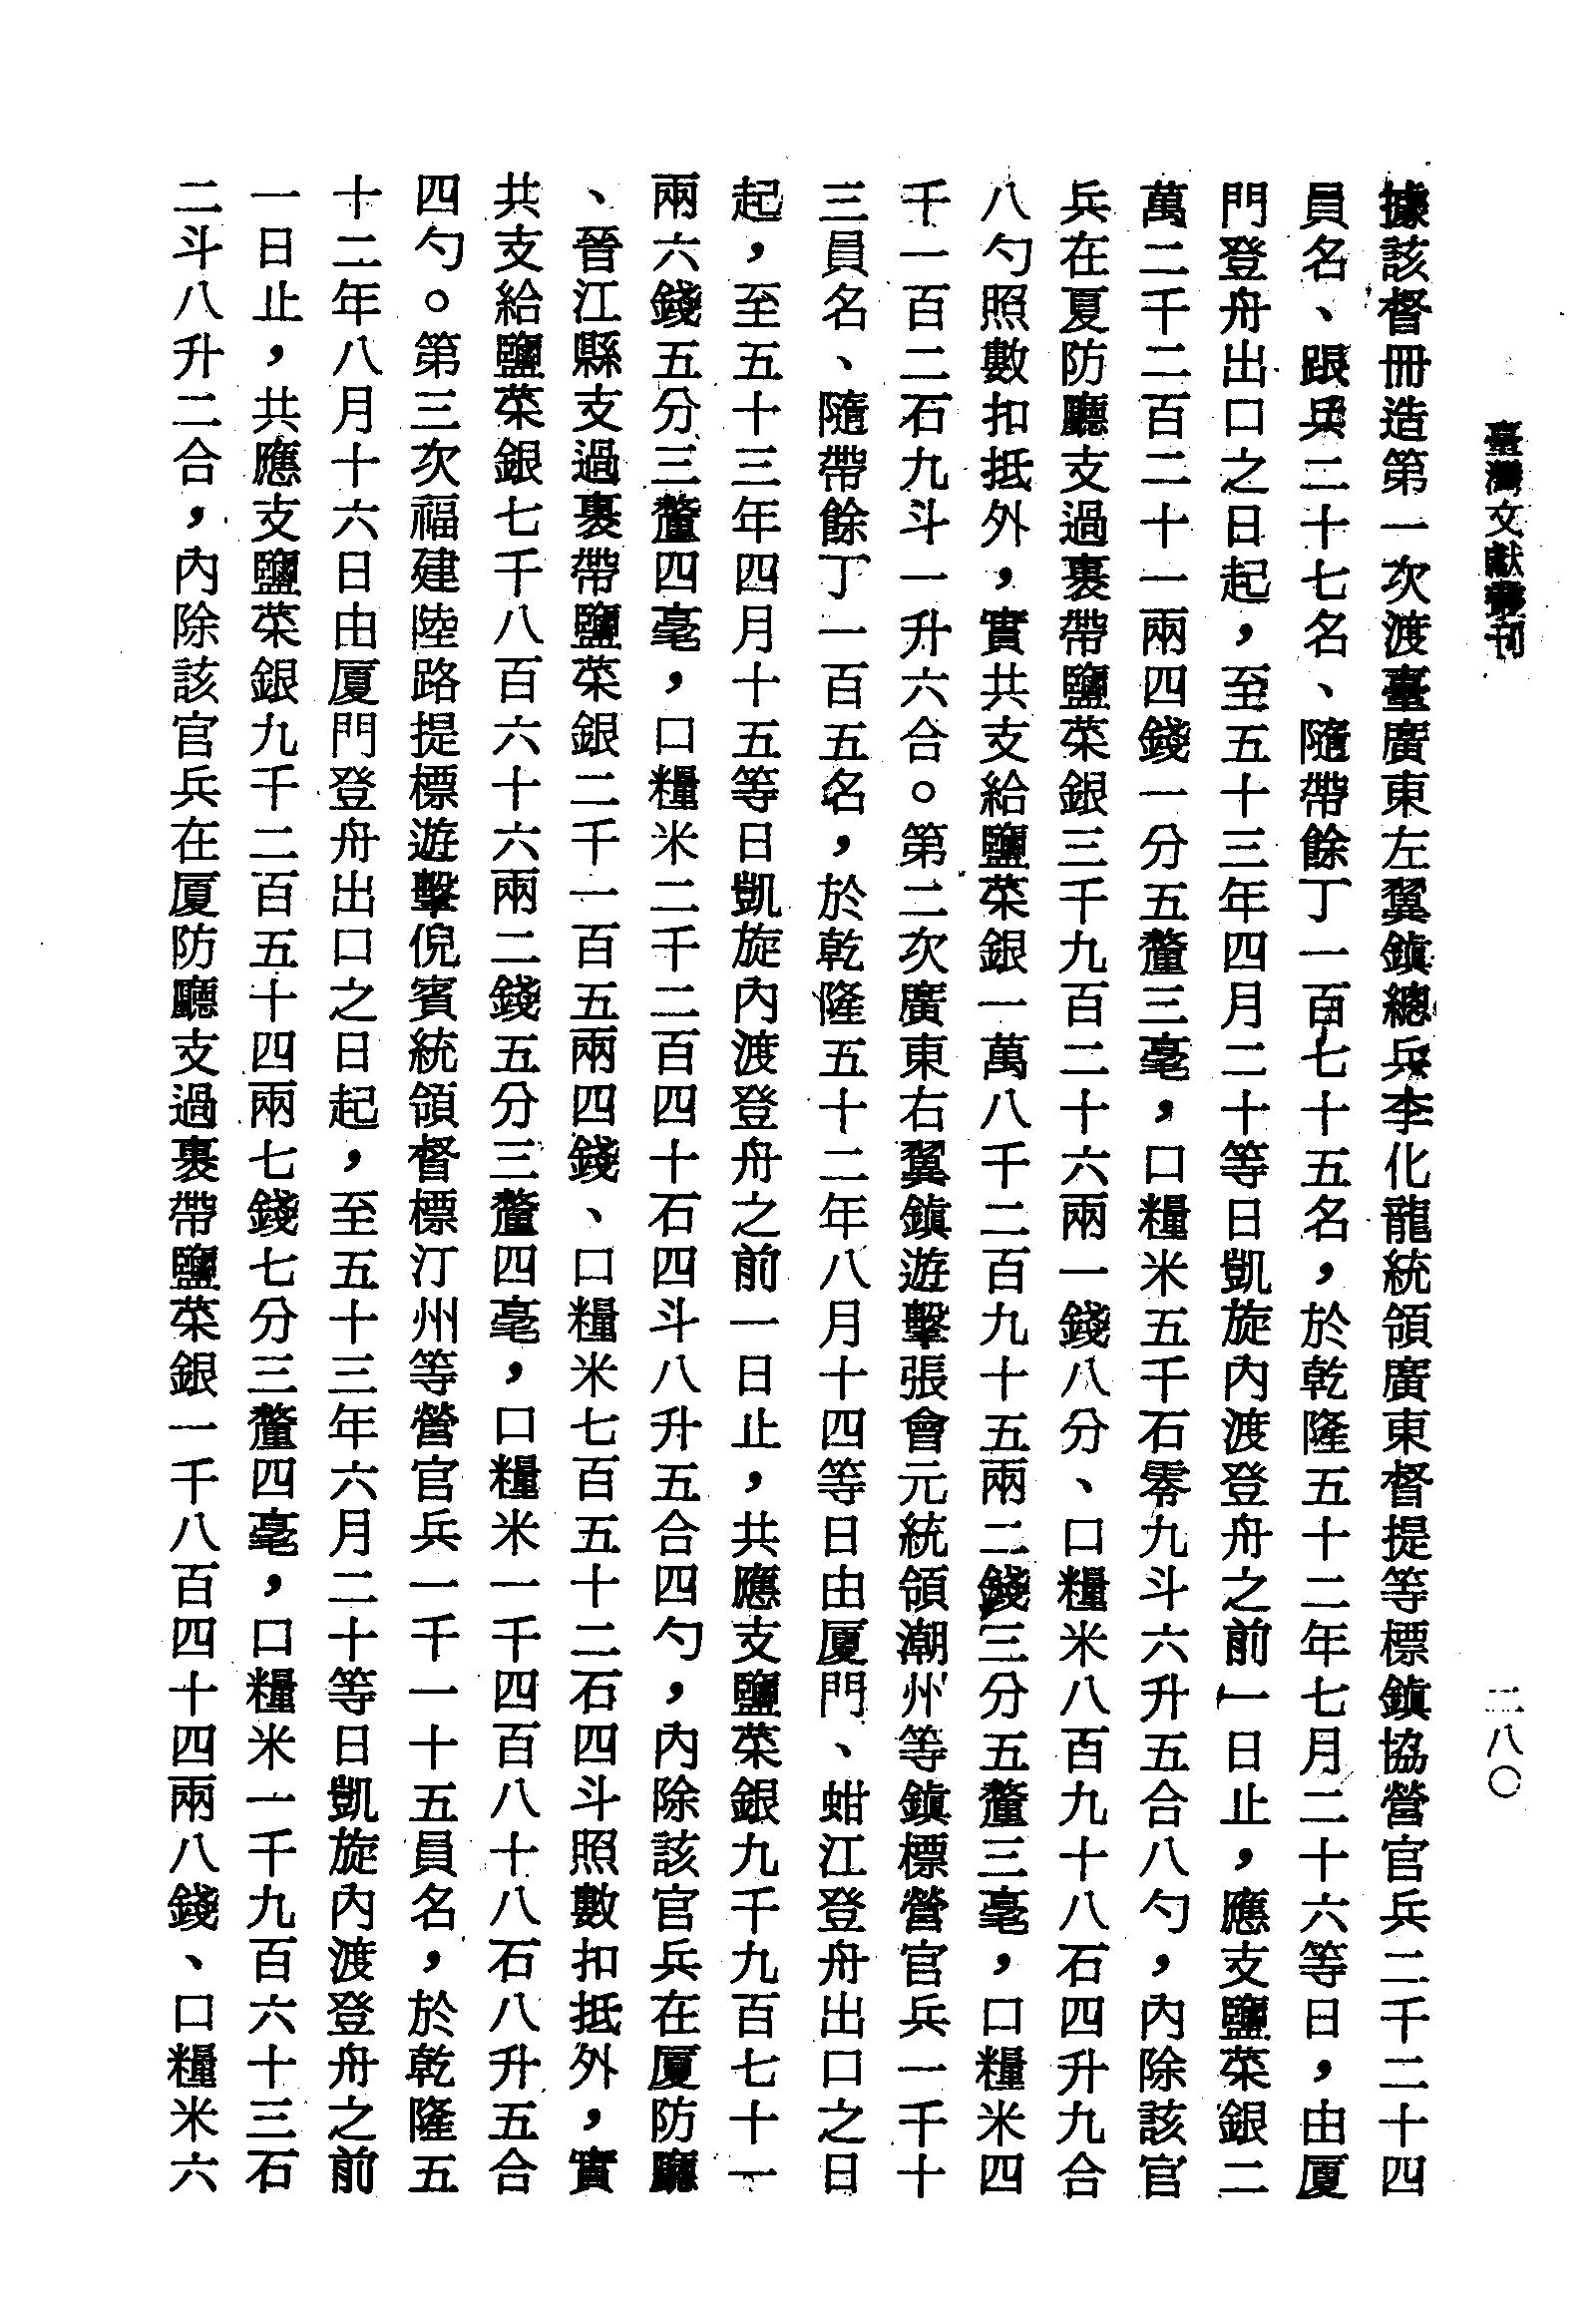 臺灣文獻叢刊
二八〇
據該督冊造第一次渡臺廣東左翼鎮總兵李化龍統領廣東督提等標鎮協營官兵二千二十四
員名、跟兵二十七名、隨帶餘丁一百七十五名，於乾隆五十二年七月二十六等日，由厦
門登舟出口之日起，至五十三年四月二十等日凱旋內渡登舟之前一日止，應支鹽菜銀二
萬二千二百二十一兩四錢一分五釐三毫，口糧米五千石零九斗六升五合八勺，內除該官
兵在夏防廳支過裹帶鹽菜銀三千九百二十六兩一錢八分、口糧米八百九十八石四升九合
八勺照數扣抵外，實共支給鹽菜銀一萬八千二百九十五兩二錢三分五釐三毫，口糧米四
千一百二石九斗一升六合。第二次廣東右翼鎮遊擊張會元統領潮州等鎮標營官兵一千十
三員名、隨帶餘丁一百五名，於乾隆五十二年八月十四等日由厦門、蚶江登舟出口之日
起，至五十三年四月十五等日凱旋內渡登舟之前一日止，共應支鹽菜銀九千九百七十一
兩六錢五分三釐四毫，口糧米二千二百四十石四斗八升五合四勺，內除該官兵在厦防廳
、晉江縣支過裹帶鹽菜銀二千一百五兩四錢、口糧米七百五十二石四斗照數扣抵外，實
共支給鹽菜銀七千八百六十六兩二錢五分三釐四毫，口糧米一千四百八十八石八升五合
四勺。第三次福建陸路提標遊擊倪賓統領督標汀州等營官兵一千一十五員名，於乾隆五
十二年八月十六日由厦門登舟出口之日起，至五十三年六月二十等日凱旋內渡登舟之前
一日止，共應支鹽菜銀九千二百五十四兩七錢七分三釐四毫，口糧米一千九百六十三石
二斗八升二合，內除該官兵在厦防廳支過裹帶鹽菜銀一千八百四十四兩八錢、口糧米六